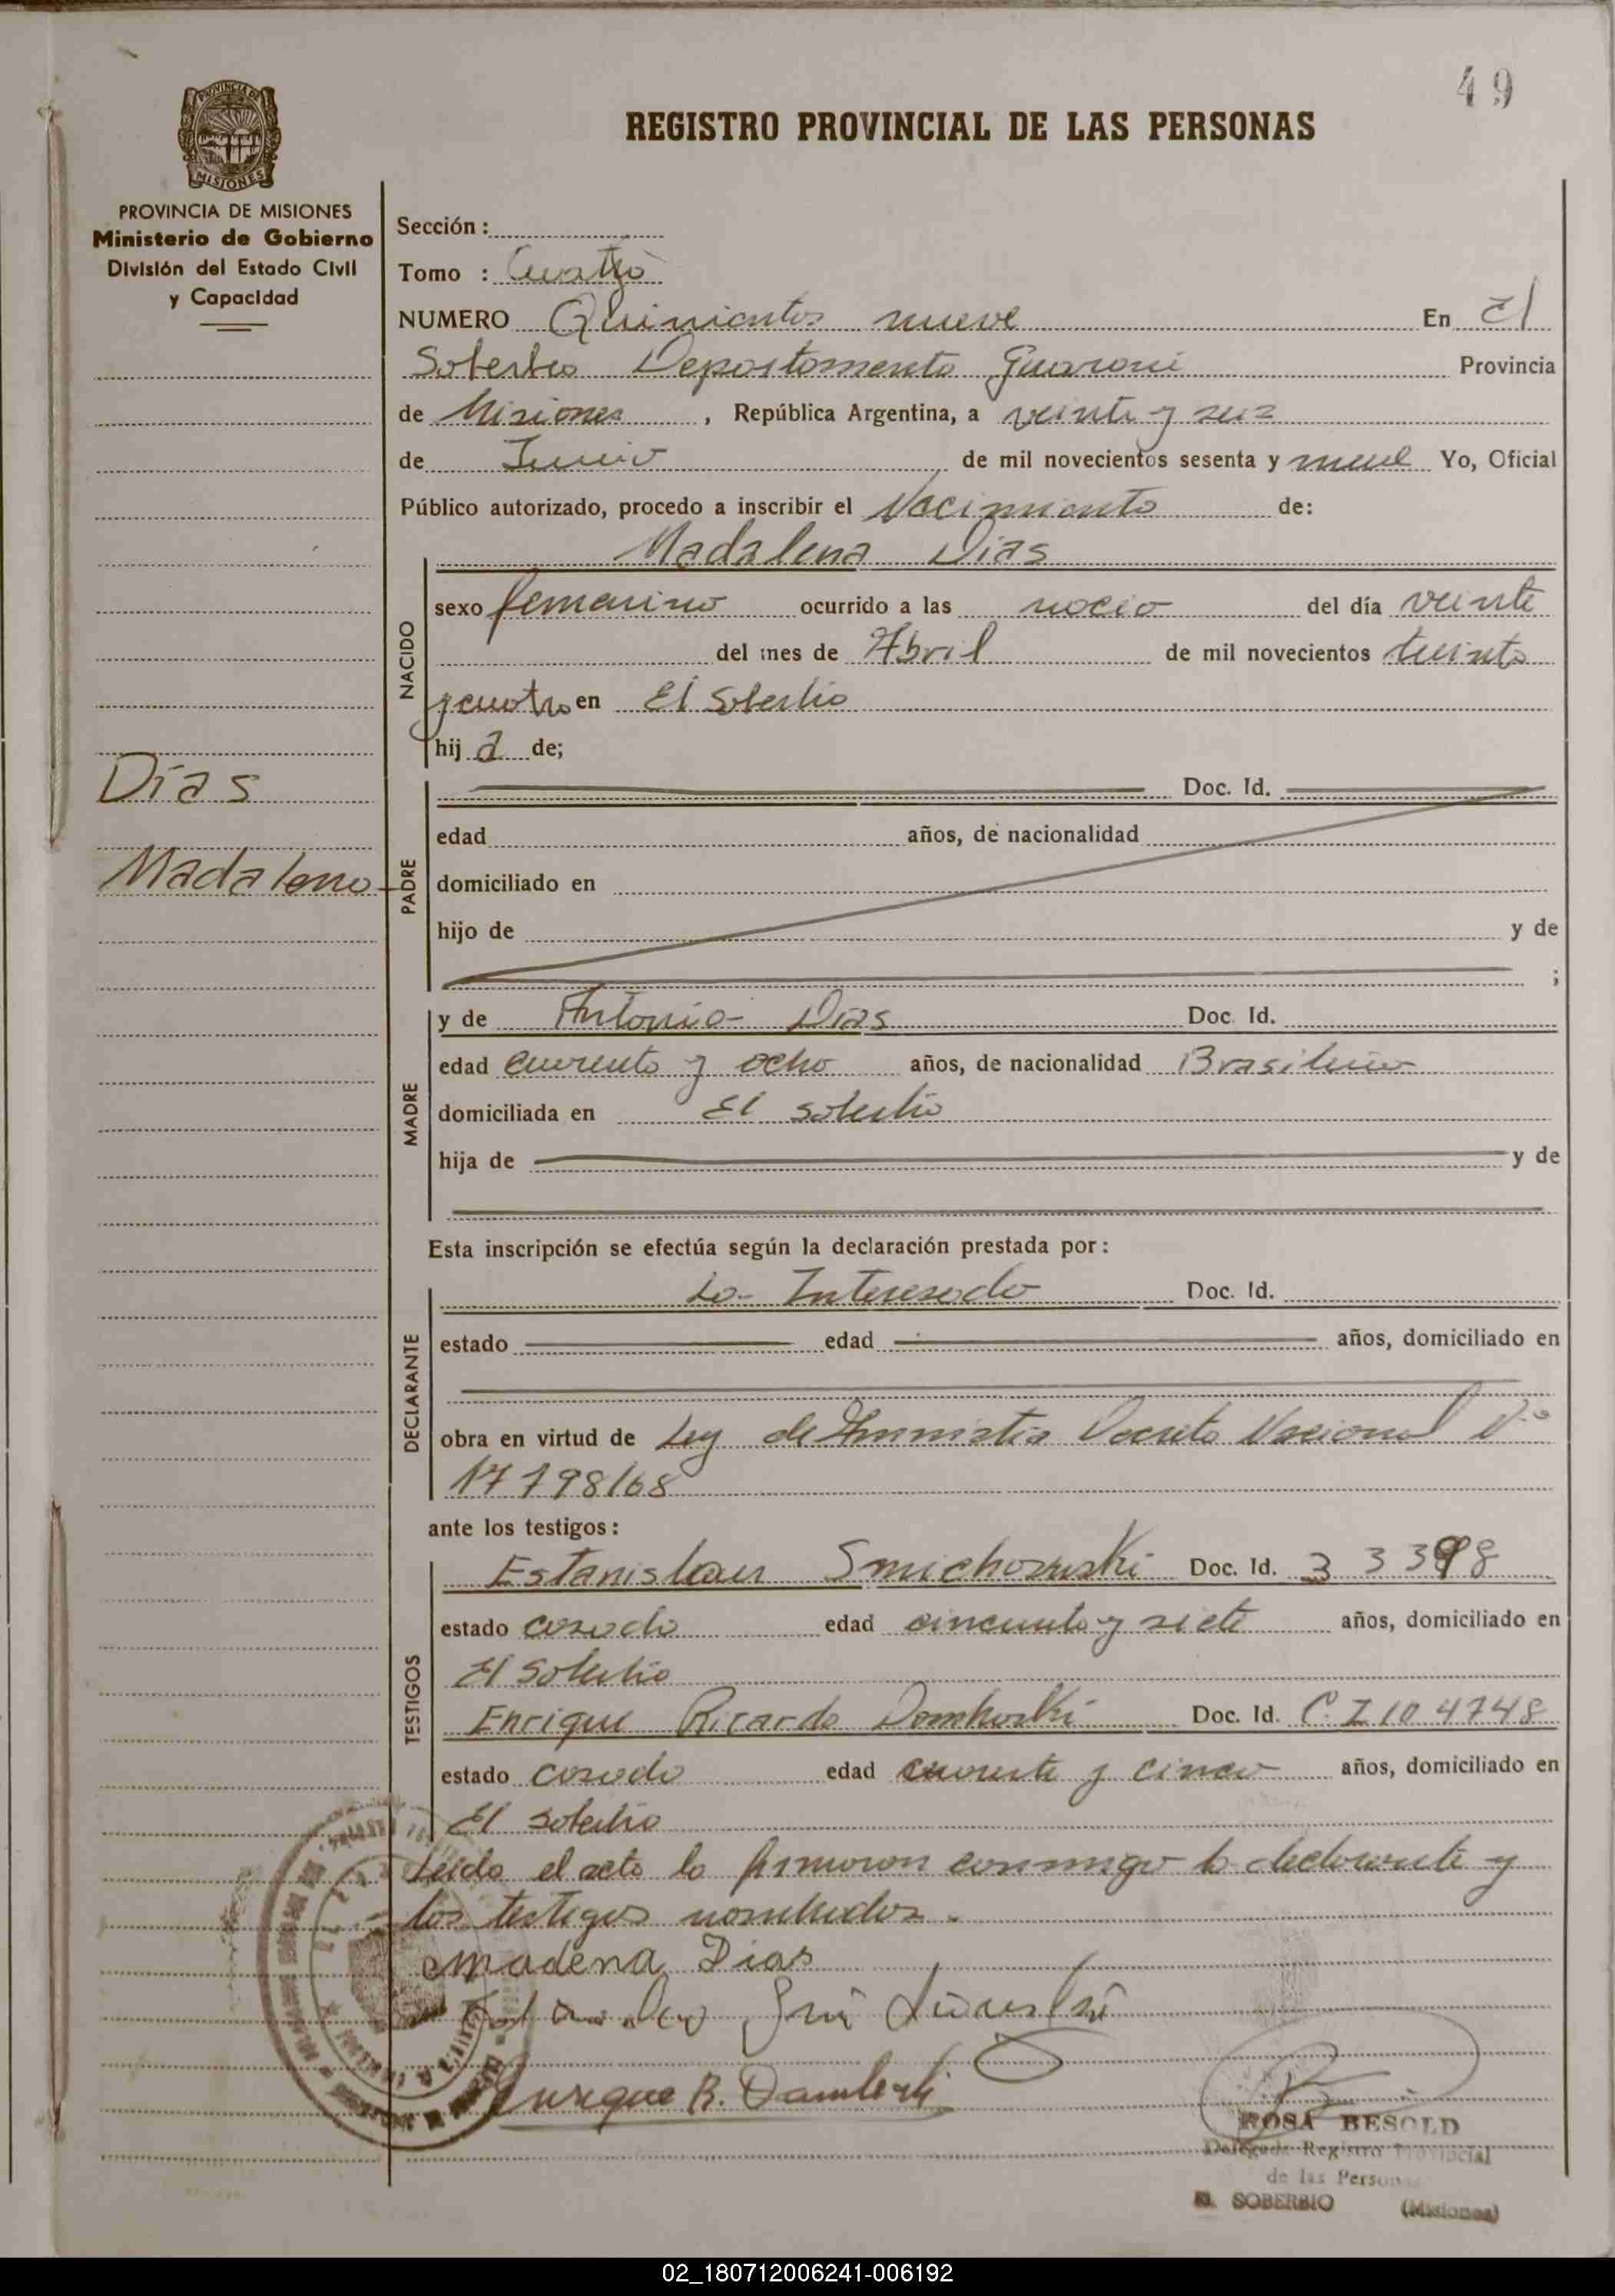 49
REGISTRO PROVINCIAL DE LAS PERSONAS
PROVINCIA DE MISIONES
PROVINCIA DE MISIONES
Ministerio de Gobierno
División del Estado Civil
y Capacidad
Sección :
Tomo : Cuatro
NUMERO Quinientos nueve En El
Soberbio Departamento Guaraní Provincia
de Misiones , República Argentina, a veinte y seis
de Junio de mil novecientos sesenta y nueve Yo, Oficial
Público autorizado, procedo a inscribir el Nacimiento de:
Madalena Dias
NACIDO
sexo femenino ocurrido a las del día veinte
del mes de Abril de mil novecientos treinta
y cuatro en El Soberbio
hij a de;
Días
Madalena
PADRE
Doc. Id.
edad años, de nacionalidad
domiciliado en
hijo de y de
;
MADRE
y de Antonia Dias Doc. Id.
edad cuarenta y ocho años, de nacionalidad Brasileña
domiciliada en El Soberbio
hija de y de
Esta inscripción se efectúa según la declaración prestada por :
DECLARANTE
La Interesada Doc. Id.
estado edad años, domiciliado en
obra en virtud de Ley de Amnistia Decreto Nacional Nº
17798/68
ante los testigos :
TESTIGOS
Estanislau Doc. Id. 3 3 398
estado casado edad cincuenta y siete años, domiciliado en
El Soberbio
Enrique Ricardo Doc. Id. C. I 10 4748
estado casado edad cuarenta y cinco años, domiciliado en
El Soberbio
Leida el acta la firmaron conmigo la declarante y
los testigos nombrados.
madena Dias
Enrique R.
ROSA BESOLD
Delegada Registro Provincial
de las Personas
EL SOBERBIO (Misiones)
02_180712006241-006192